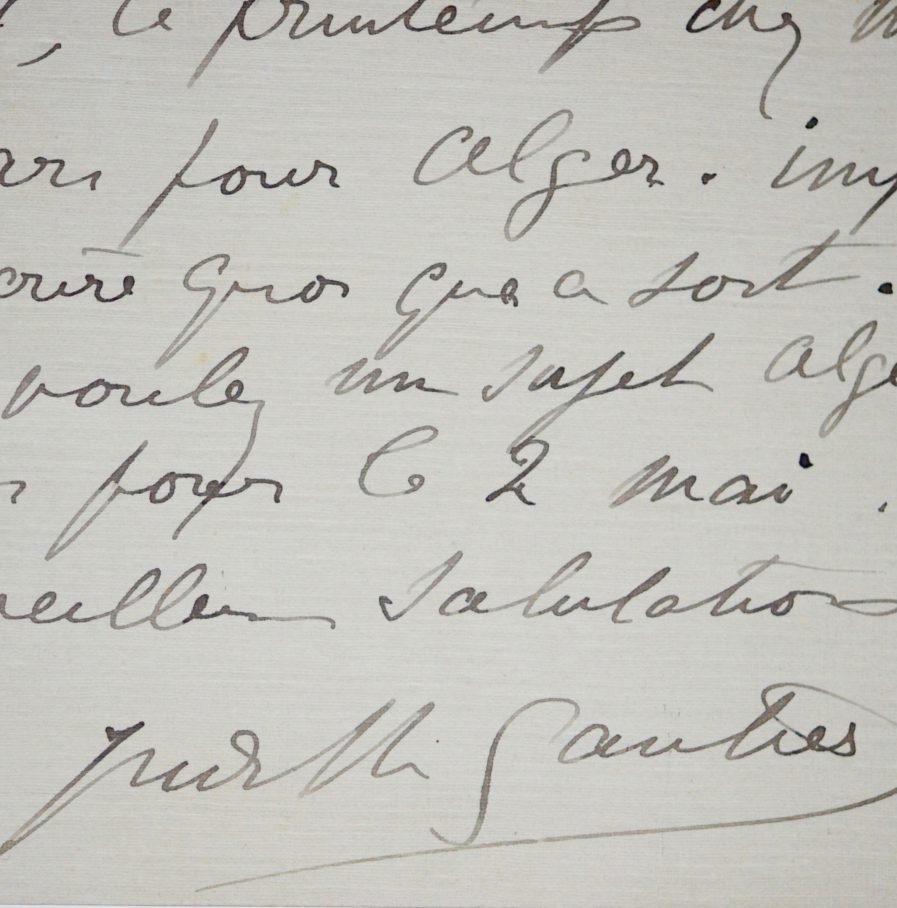 , le printemps chez
pars pour Alger. imp
crire quoi que ce soit.
voulez un sujet alge
pour le 2 mai.
meilleures salutations
Judith Gautier